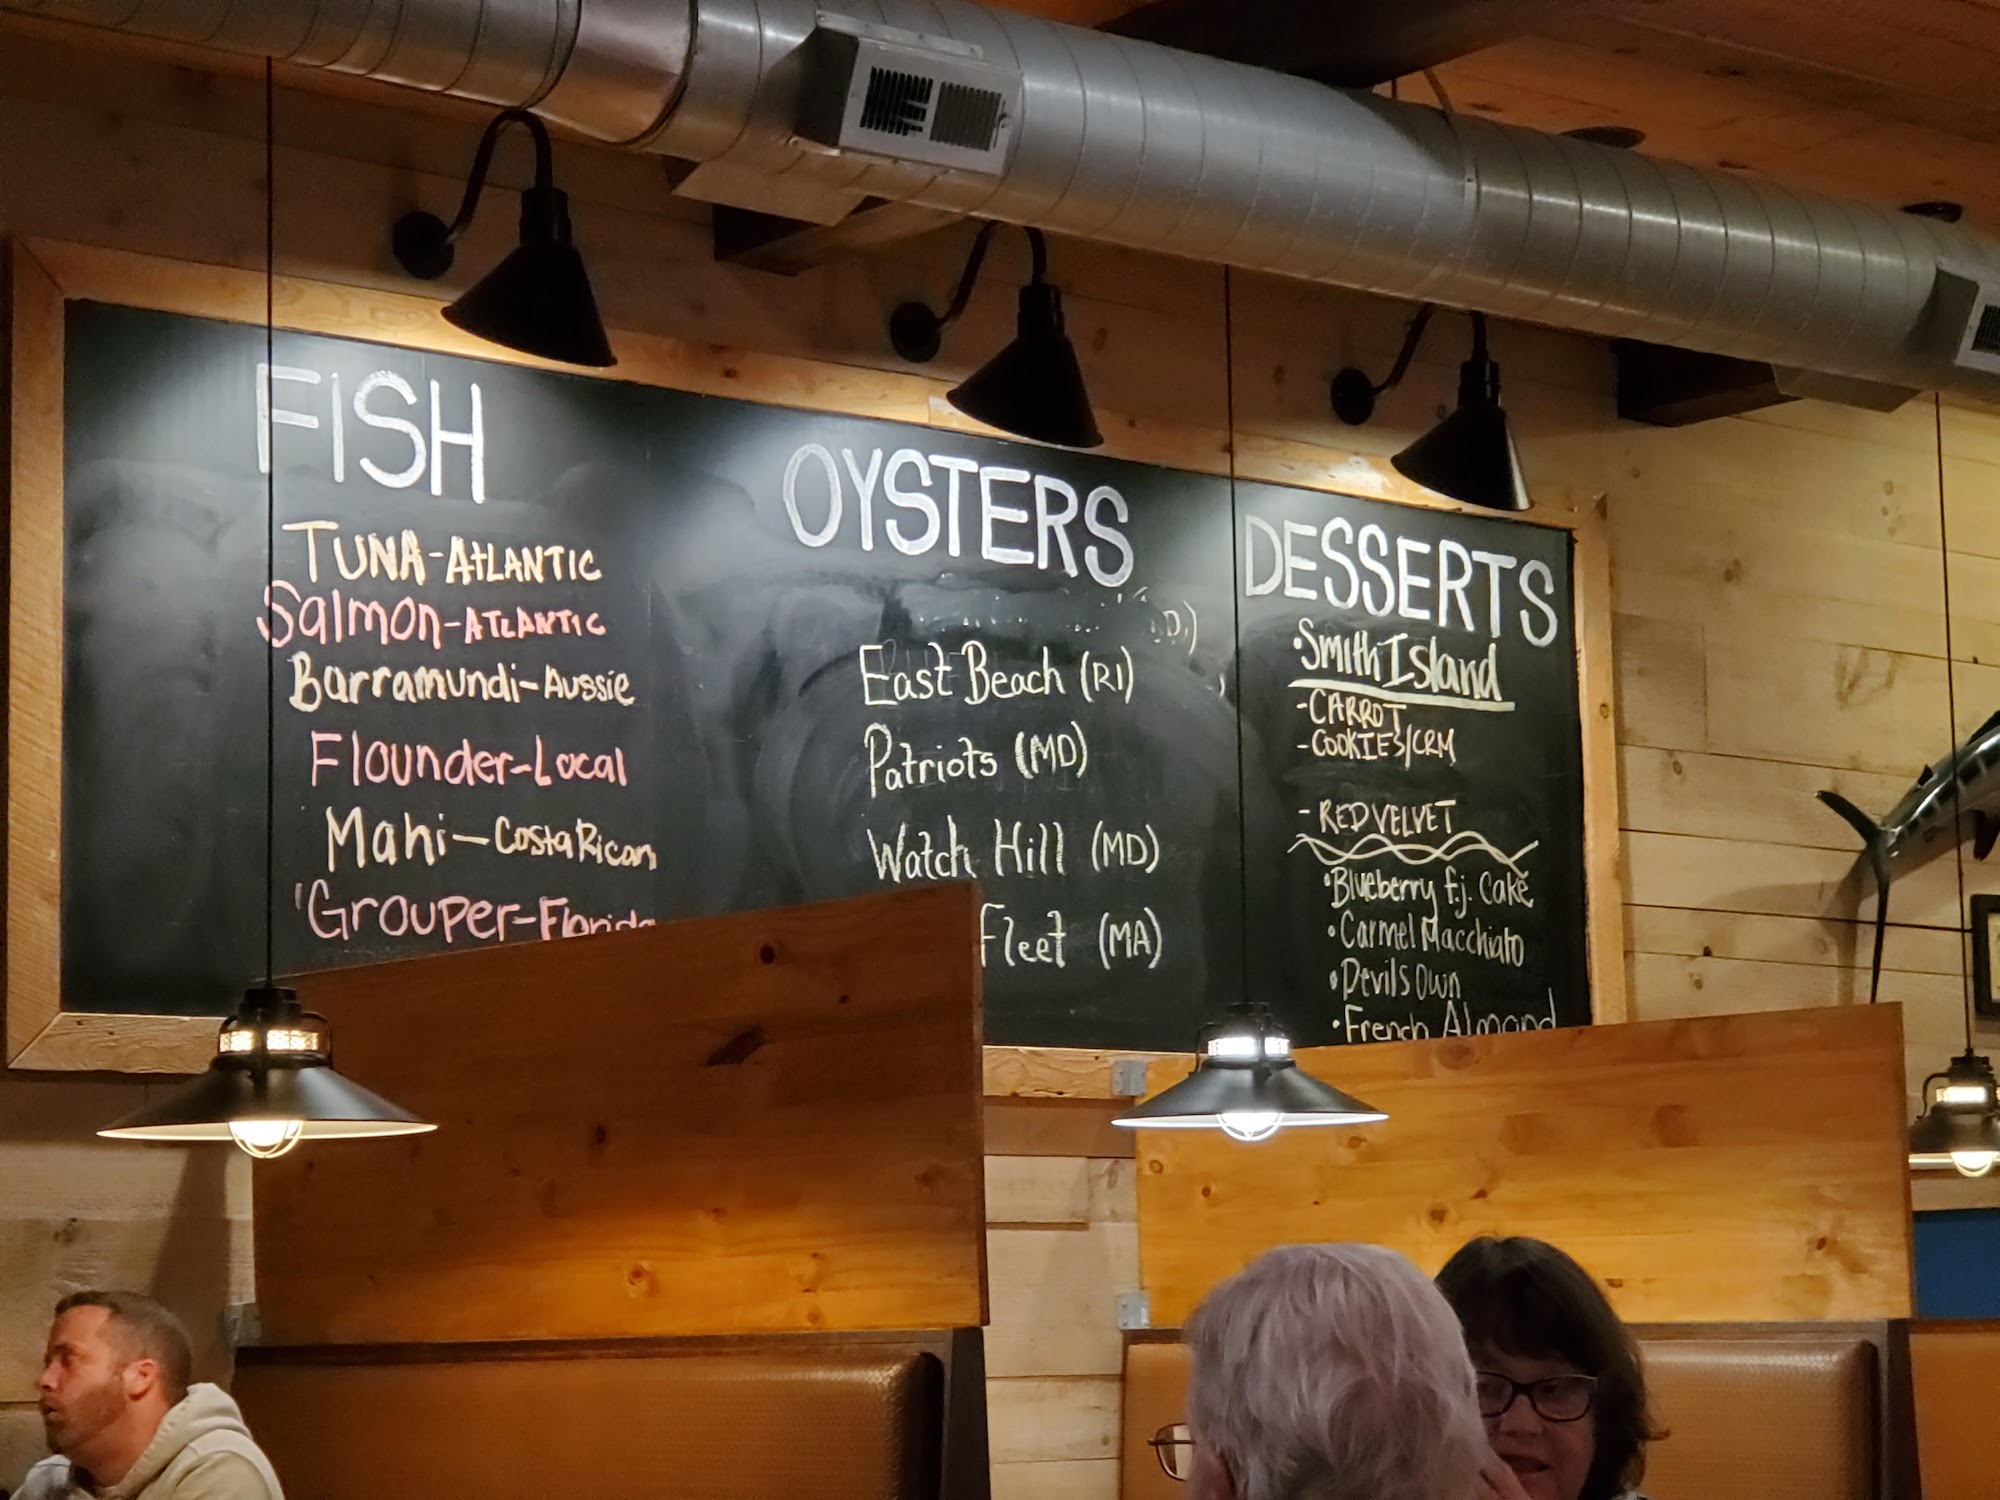 FISH
TUNA-ATLANTIC
Salmon-ATLANTIC
Barramundi-Aussie
Flounder-Local
Mahi-Costa Rican
Grouper-Florida
OYSTERS
East Beach (RI)
Patriots (MD)
Watch Hill (MD)
Fleet (MA)
DESSERTS
•Smith Island
-CARROT
-COOKIES/CRM
-RED VELVET
•Blueberry f.j. Cake
•Carmel Macchiato
•Devils Own
•French Almond